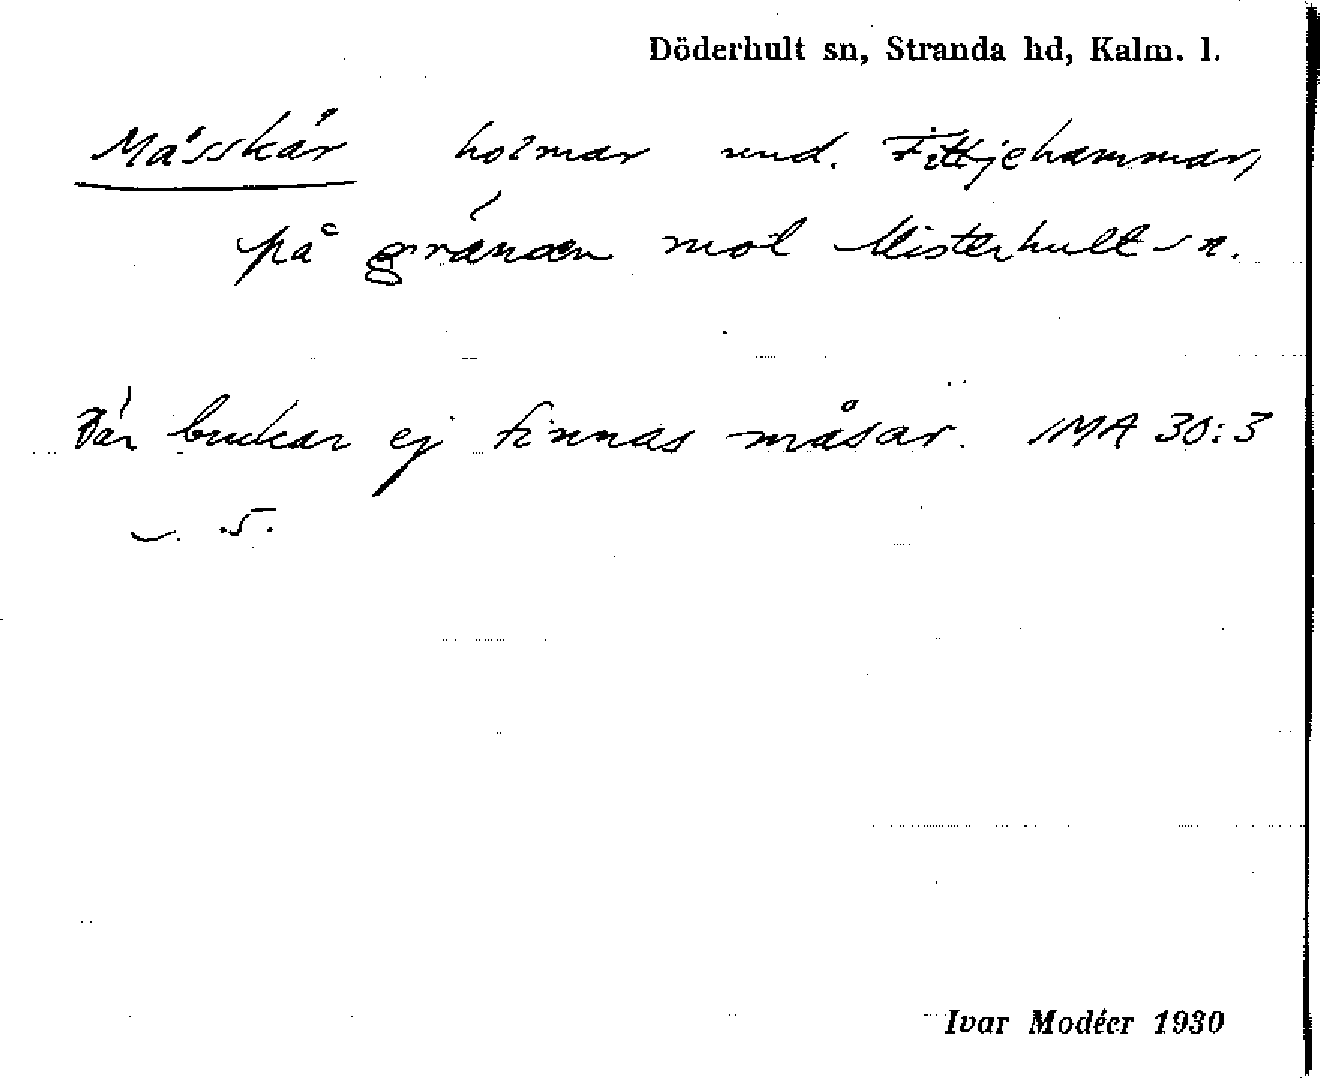 Döderhult sn, Stranda hd, Kalm. l.
Mässkär holmar und. Fittjehammar,
på gränsen mot Misterhult sn.
Där brukar ej finnas måsar. MA 30:3
5.
Ivar Modéer 1930